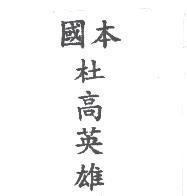 國本
杜
高
英
雄